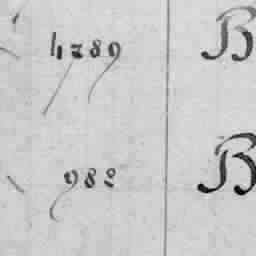 4789 B
982 B